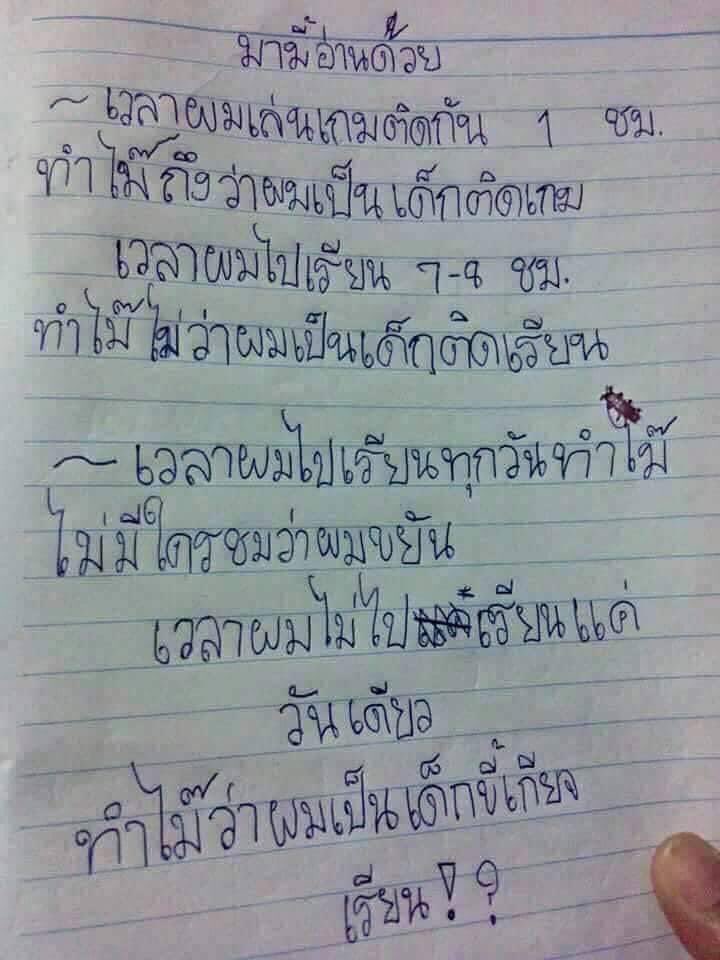 มามี๊อ่านด้วย
~ เวลาผมเล่นเกมติดกัน 1 ชม.
ทำไม๊ถึงว่าผมเป็นเด็กติดเกม
เวลาผมไปเรียน 7-8 ชม.
ทำไม๊ไม่ว่าผมเป็นเด็กติดเรียน
~ เวลาผมไปเรียนทุกวันทำไม๊
ไม่มีใครชมว่าผมขยัน
เวลาผมไม่ไปเรียนแค่
วันเดียว
ทำไม๊ว่าผมเป็นเด็กขี้เกียจ
เรียน!?